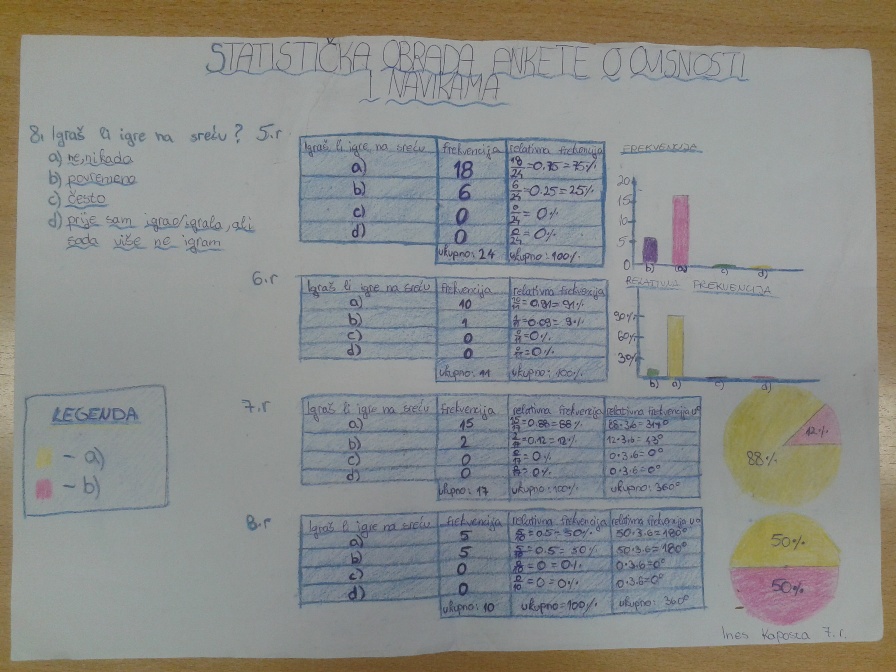 STATISTIČKA OBRADA ANKETE O OVISNOSTI
I NAVIKAMA
8. Igraš li igre na sreću? 5.r
a) ne, nikada
b) povremeno
c) često
d) prije sam igrao/igrala, ali
sada više ne igram
Igraš li igre na sreću frekvencija relativna frekvencija
a) 18 18/24=0.75=75%
b) 6 6/24=0.25=25%
c) 0 0/24=0%
d) 0 0/24=0%
ukupno: 24 ukupno: 100%
FREKVENCIJA
20
15
10
5
0
b) a) c) d)
6.r
Igraš li igre na sreću frekvencija relativna frekvencija
a) 10 10/11=0.91=91%
b) 1 1/11=0.09=9%
c) 0 0/11=0%
d) 0 0/11=0%
ukupno: 11 ukupno: 100%
RELATIVNA FREKVENCIJA
90%
60%
30%
b) a) c) d)
LEGENDA
- a)
- b)
7.r
Igraš li igre na sreću frekvencija relativna frekvencija relativna frekvencija u °
a) 15 15/17=0.88=88% 88·3.6=317°
b) 2 2/17=0.12=12% 12·3.6=43°
c) 0 0/17=0% 0·3.6=0°
d) 0 0/17=0% 0·3.6=0°
ukupno: 17 ukupno: 100% ukupno: 360°
12%
88%
8.r
Igraš li igre na sreću frekvencija relativna frekvencija relativna frekvencija u °
a) 5 5/10=0.5=50% 50·3.6=180°
b) 5 5/10=0.5=50% 50·3.6=180°
c) 0 0/10=0=0% 0·3.6=0°
d) 0 0/10=0=0% 0·3.6=0°
ukupno: 10 ukupno=100% ukupno: 360°
50%
50%
Ines 7.r.